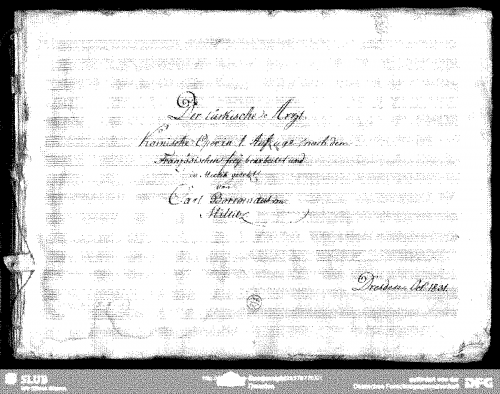 Der türkische Arzt.
Komische Oper in 1. Aufzuge nach dem
Französischen frey bearbeitet und
in Musik gesetzt
von
Carl Borromäus von
Miltitz
Dresden. Oct. 1831.
SLUB
DFG